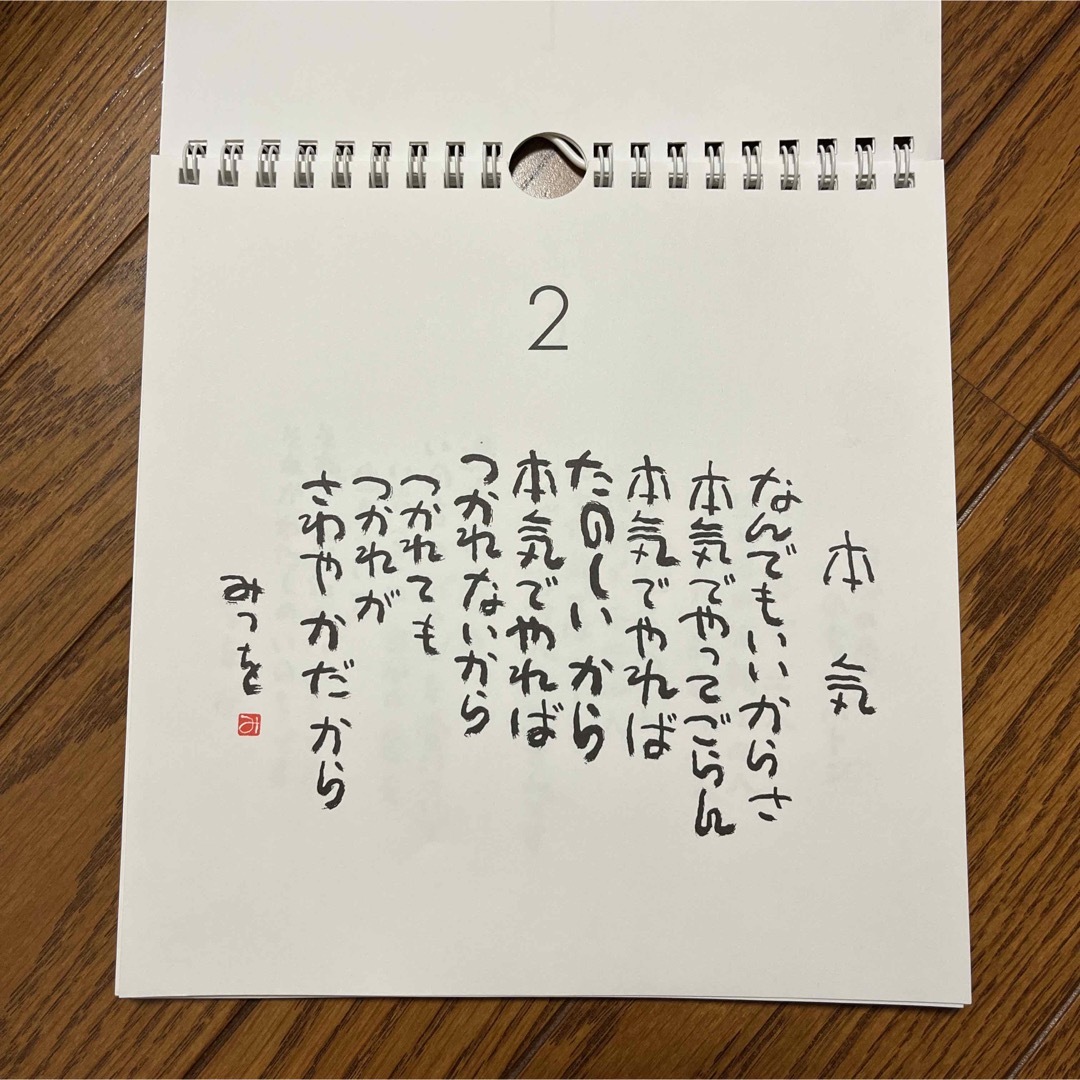 2
本気
なんでもいいからさ
本気でやってごらん
本気でやれば
たのしいから
本気でやれば
つかれないから
つかれても
つかれが
さわやかだから
みつを
み